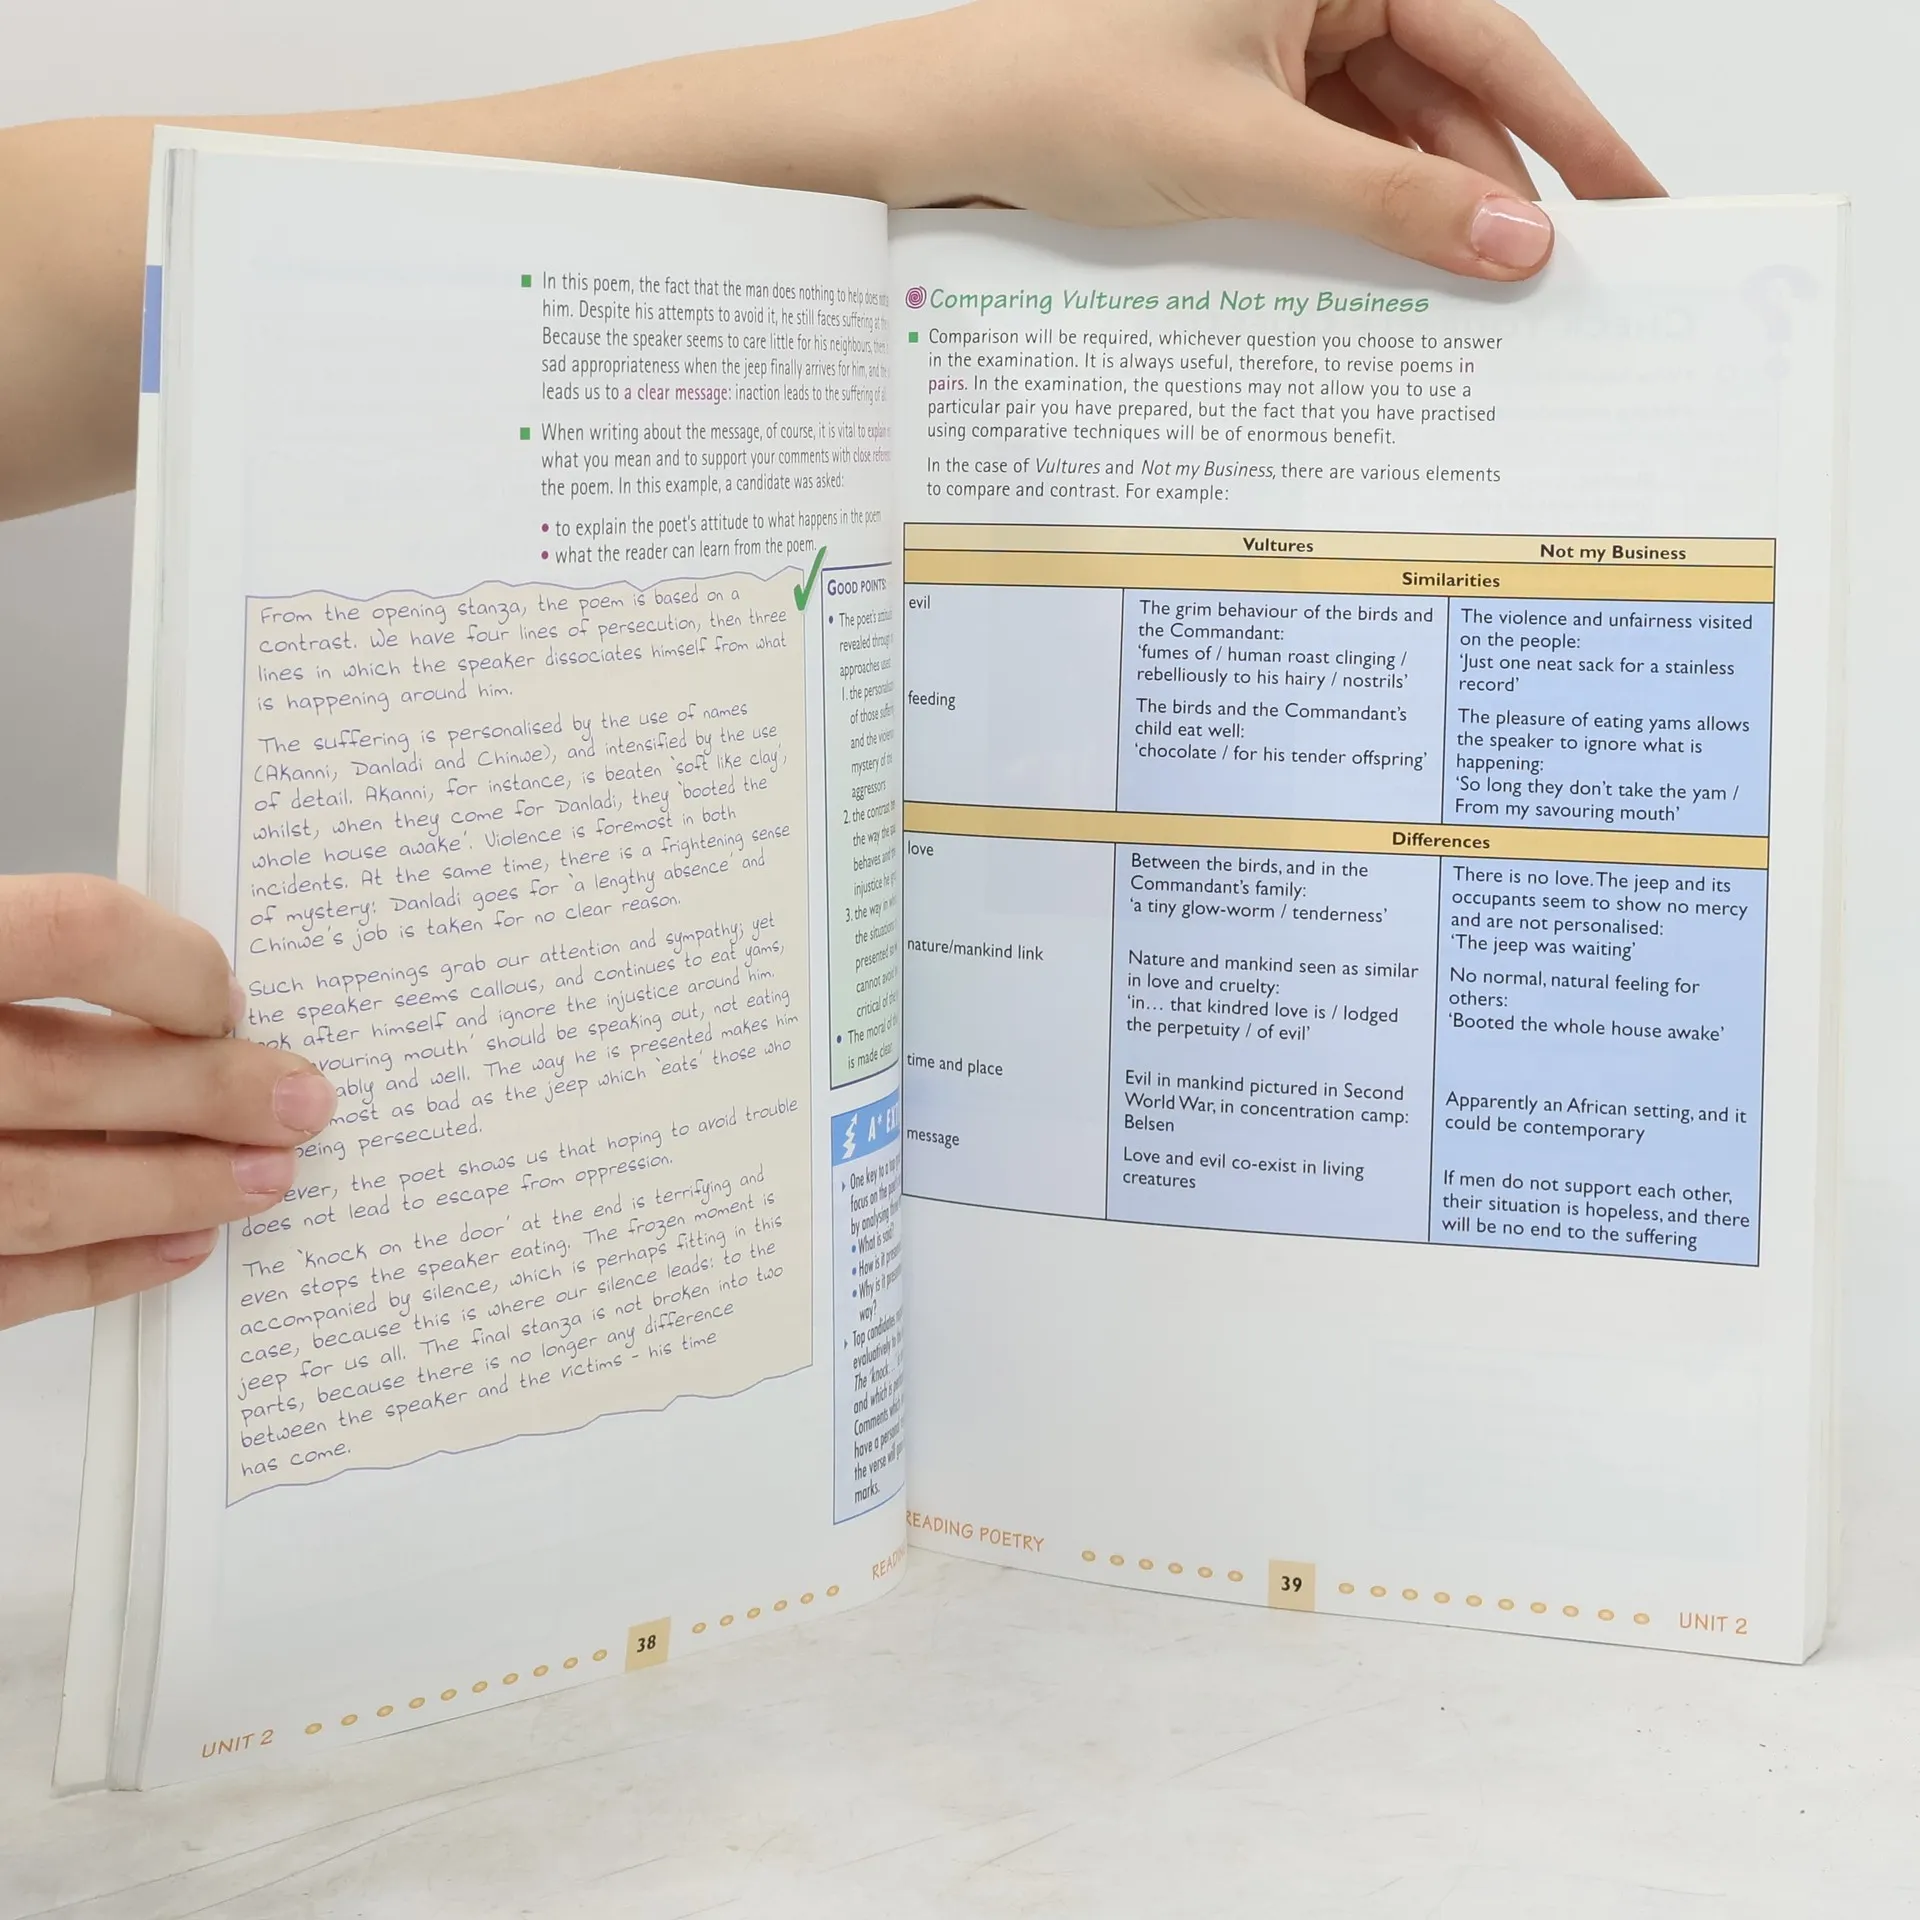 In this poem, the fact that the man does nothing to help does
him. Despite his attempts to avoid it, he still faces suffering at
Because the speaker seems to care little for his neighbours,
sad appropriateness when the jeep finally arrives for him, and
leads us to a clear message: inaction leads to the suffering of
When writing about the message, of course, it is vital to explain
what you mean and to support your comments with close
the poem. In this example, a candidate was asked:
• to explain the poet's attitude to what happens in the poem
• what the reader can learn from the poem.
From the opening stanza, the poem is based on a
contrast. We have four lines of persecution, then three
lines in which the speaker dissociates himself from what
is happening around him.
The suffering is personalised by the use of names
(Akanni, Danladi and Chinwe), and intensified by the use
of detail. Akanni, for instance, is beaten 'soft like clay',
whilst, when they come for Danladi, they 'booted the
whole house awake'. Violence is foremost in both
incidents. At the same time, there is a frightening sense
of mystery: Danladi goes for 'a lengthy absence' and
Chinwe's job is taken for no clear reason.
Such happenings grab our attention and sympathy; yet
the speaker seems callous, and continues to eat yams,
after himself and ignore the injustice around him.
mouth' should be speaking out, not eating
and well. The way he is presented makes him
most as bad as the jeep which 'eats' those who
being persecuted.
the poet shows us that hoping to avoid trouble
does not lead to escape from oppression.
The 'knock on the door' at the end is terrifying and
even stops the speaker eating. The frozen moment is
accompanied by silence, which is perhaps fitting in this
case, because this is where our silence leads: to the
jeep for us all. The final stanza is not broken into two
parts, because there is no longer any difference
between the speaker and the victims - his time
has come.
GOOD POINTS:
• The poet's
revealed through
approaches used
1. the
of those
and the
mystery of
aggressors
2. the contrast
the way the
behaves and
injustice he
3. the way in
the situation
presented
cannot avoid
critical of
• The moral of
is made clear
A*
One key to a top
focus on the
by analysing
• What is said?
• How is it
• Why is it
way?
Top candidates
evaluatively to
The 'knock...'
and which is
Comments which
have a personal
the verse will
marks.
UNIT 2
38
Comparing Vultures and Not my Business
Comparison will be required, whichever question you choose to answer
in the examination. It is always useful, therefore, to revise poems in
pairs. In the examination, the questions may not allow you to use a
particular pair you have prepared, but the fact that you have practised
using comparative techniques will be of enormous benefit.
In the case of Vultures and Not my Business, there are various elements
to compare and contrast. For example:
Vultures Not my Business
Similarities
evil
The grim behaviour of the birds and
the Commandant:
'fumes of / human roast clinging /
rebelliously to his hairy / nostrils'
The violence and unfairness visited
on the people:
'Just one neat sack for a stainless
record'
feeding
The birds and the Commandant's
child eat well:
'chocolate / for his tender offspring'
The pleasure of eating yams allows
the speaker to ignore what is
happening:
'So long they don't take the yam /
From my savouring mouth'
Differences
love
Between the birds, and in the
Commandant's family:
'a tiny glow-worm / tenderness'
There is no love. The jeep and its
occupants seem to show no mercy
and are not personalised:
'The jeep was waiting'
nature/mankind link
Nature and mankind seen as similar
in love and cruelty:
'in... that kindred love is / lodged
the perpetuity / of evil'
No normal, natural feeling for
others:
'Booted the whole house awake'
time and place
Evil in mankind pictured in Second
World War, in concentration camp:
Belsen
Apparently an African setting, and it
could be contemporary
message
Love and evil co-exist in living
creatures
If men do not support each other,
their situation is hopeless, and there
will be no end to the suffering
READING POETRY
39
UNIT 2